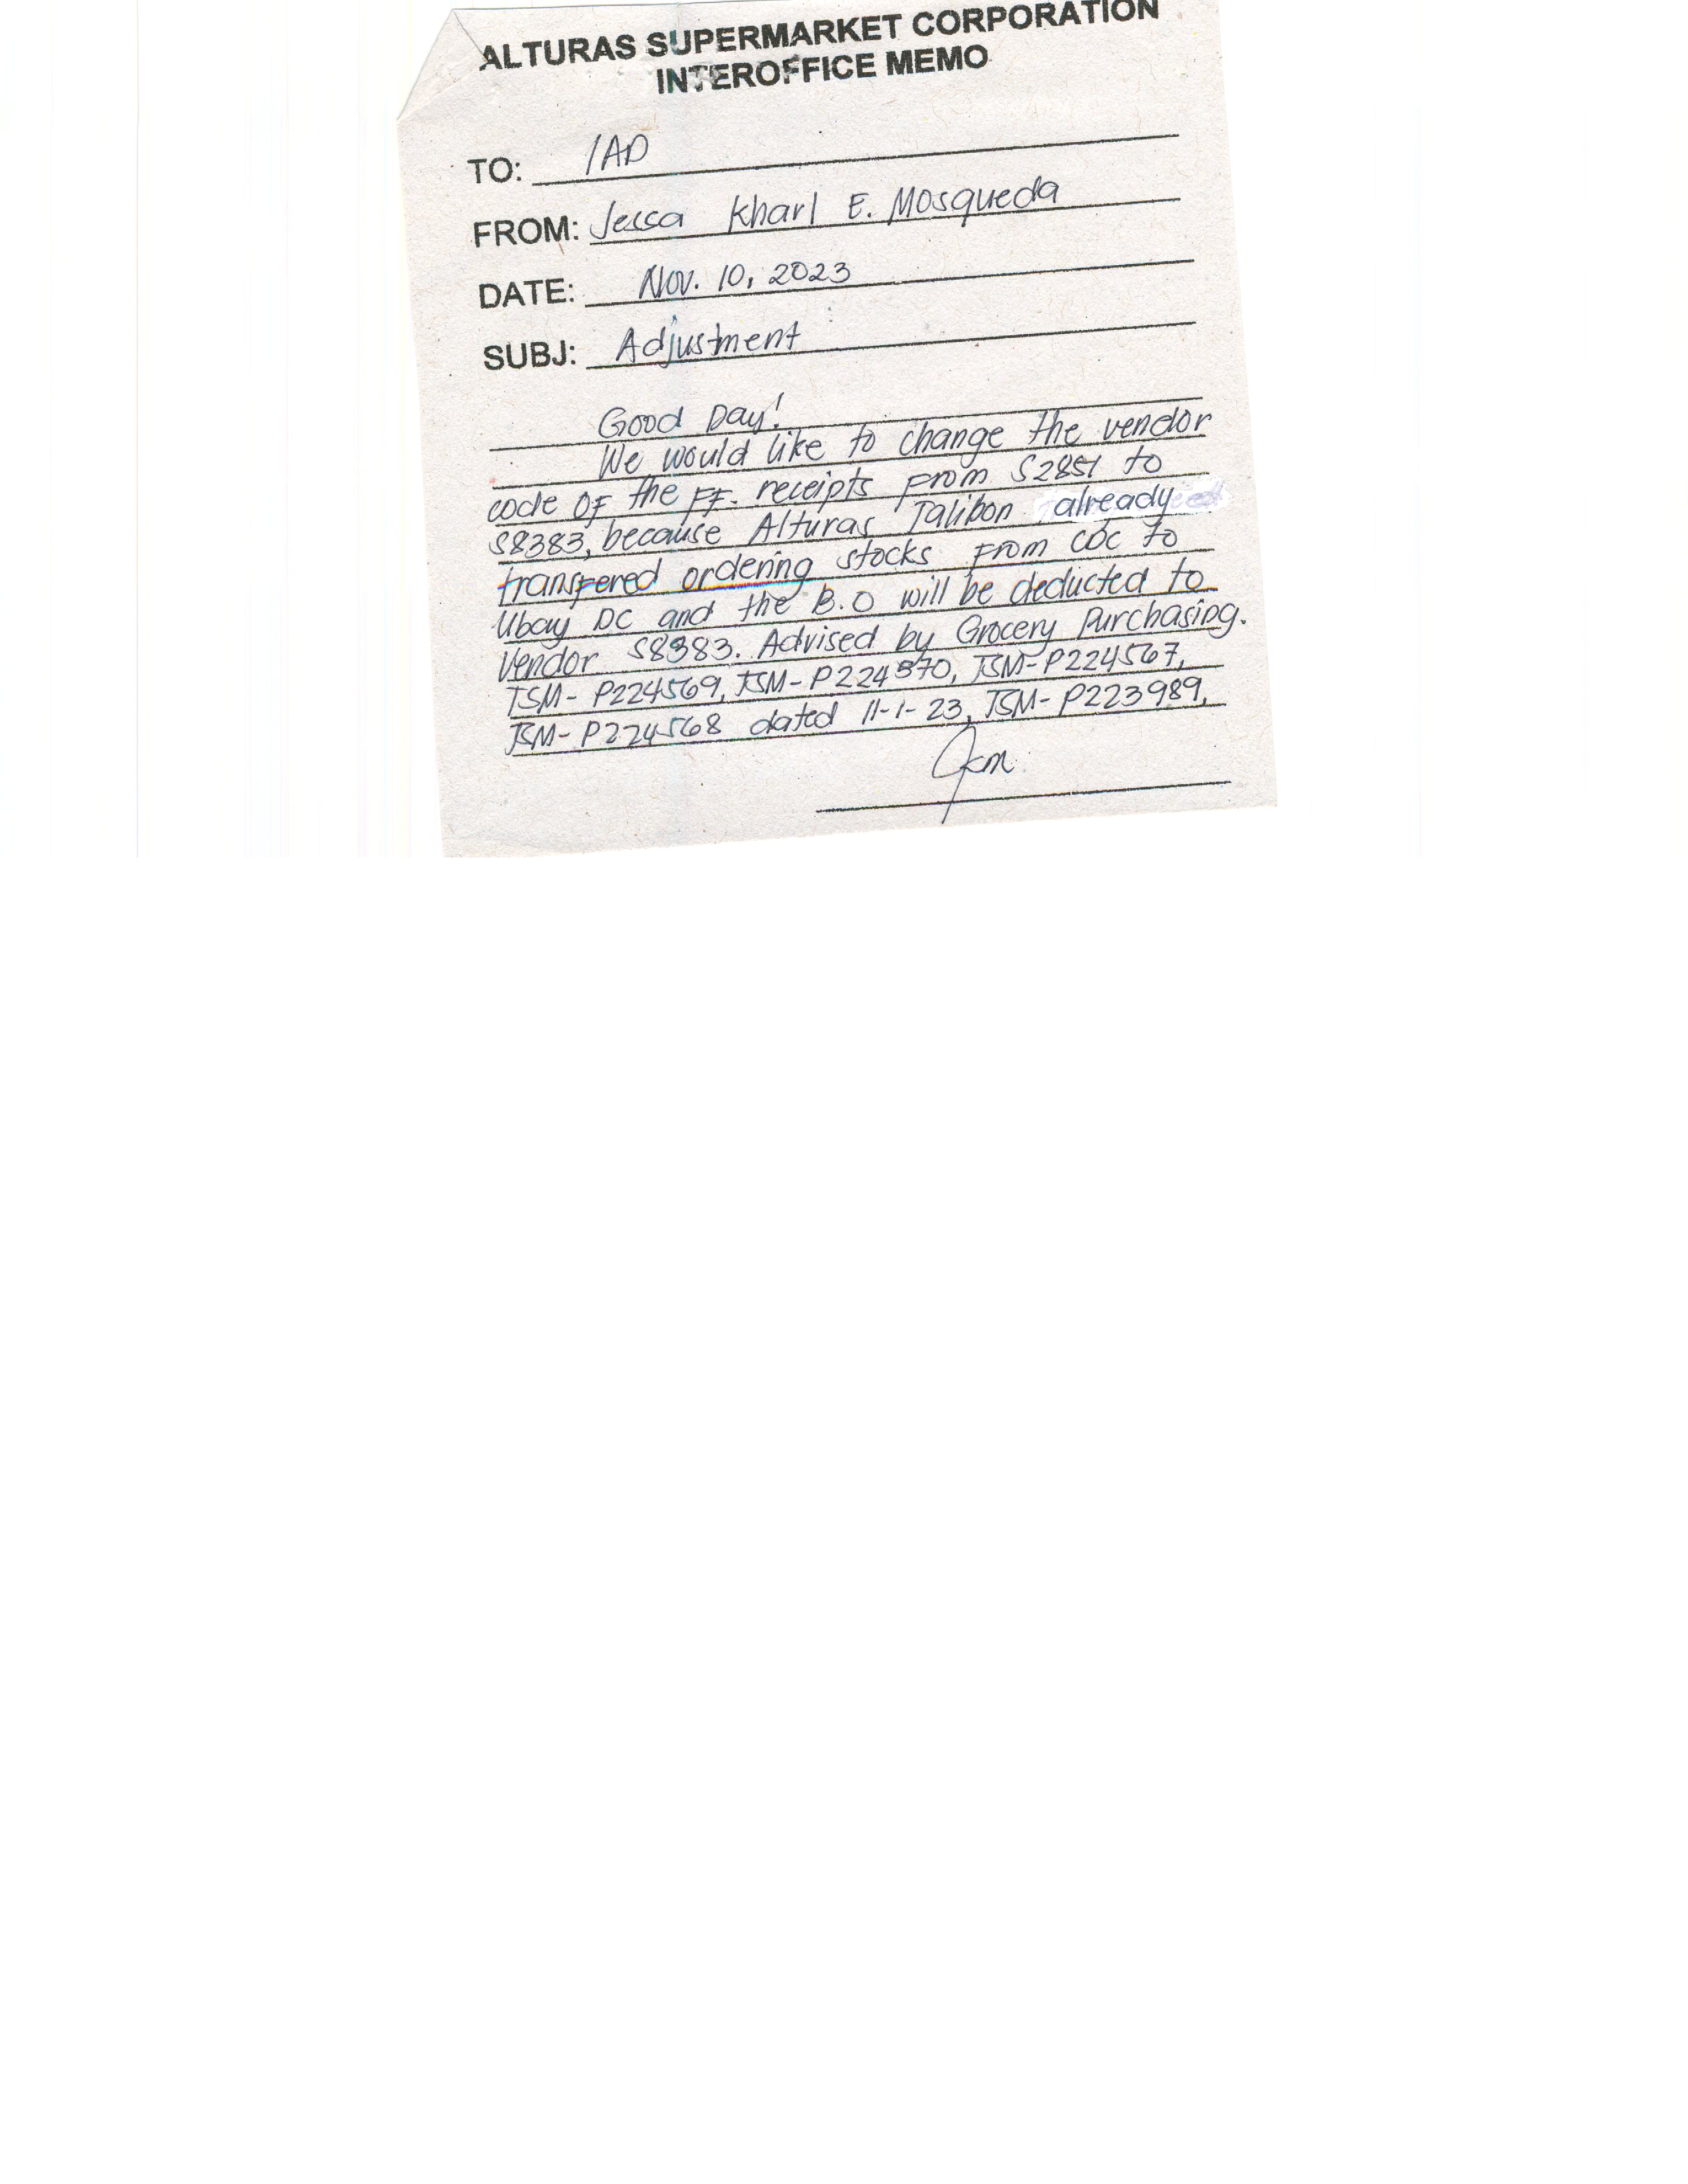 ALTURAS SUPERMARKET CORPORATION
INTEROFFICE MEMO
TO: IAD
FROM: Jessa Kharl E. Mosqueda
DATE: Nov. 10, 2023
SUBJ: Adjustment
Good Day!
We would like to change the vendor
code of the ff. receipts from S2851 to
S8383, because Alturas Talibon already
transfered ordering stocks from CDC to
Ubay DC and the B.O will be deducted to
Vendor S8383. Advised by Grocery Purchasing.
TSM- P224569, TSM- P224570, TSM- P224567,
TSM- P224568 dated 11-1-23, TSM- P223989,
Jkm